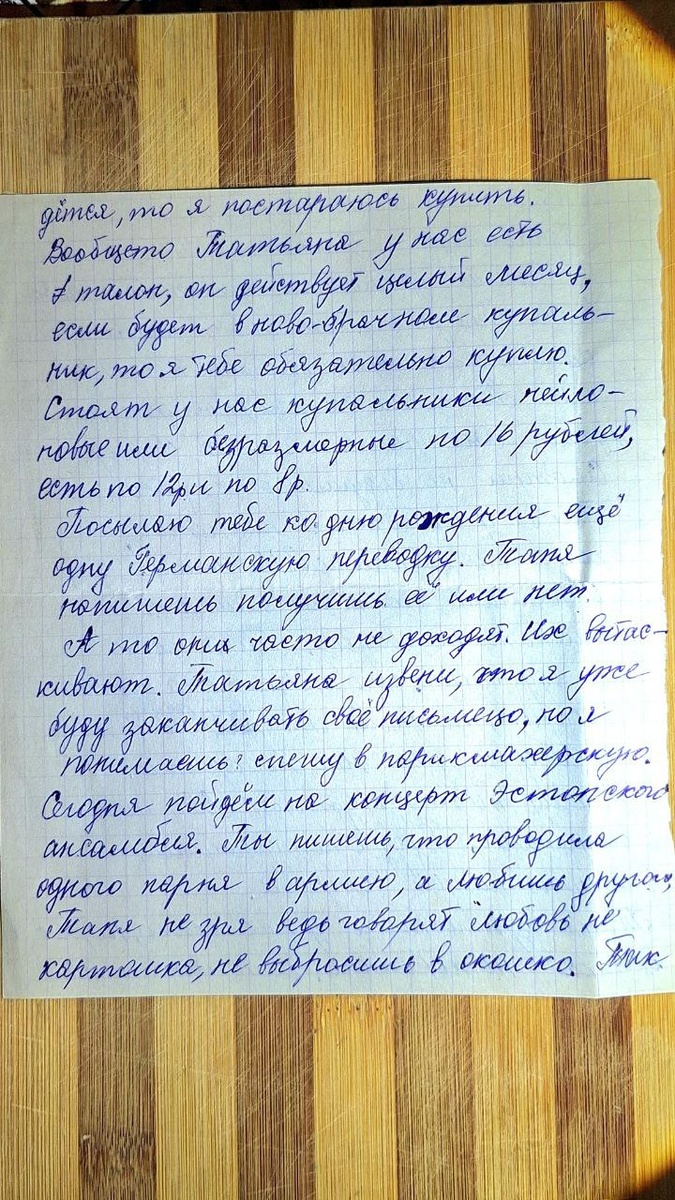 дится, то я постараюсь купить.
Вообщето Татьяна у нас есть
1 талон, он действует целый месяц,
если будет в ново-брачном купаль-
ник, то я тебе обязательно куплю.
Стоят у нас купальники нейло-
новые или безразмарные по 16 рублей,
есть по 12р и по 8р.
Посылаю тебе ко дню рождения ещё
одну Германскую переводку. Таня
напишешь получишь её или нет.
А то они часто не доходят. Их вытас-
кивают. Татьяна извени, что я уже
буду заканчивать своё письмецо, но я
понимаешь? спешу в парикмахерскую.
Сегодня пойдём на концерт Эстонского
ансамбля. Ты пишешь, что проводила
одного парня в армию, а любишь другого,
Таня не зря ведь говорят любовь не
картошка, не выбросишь в окошко. Так